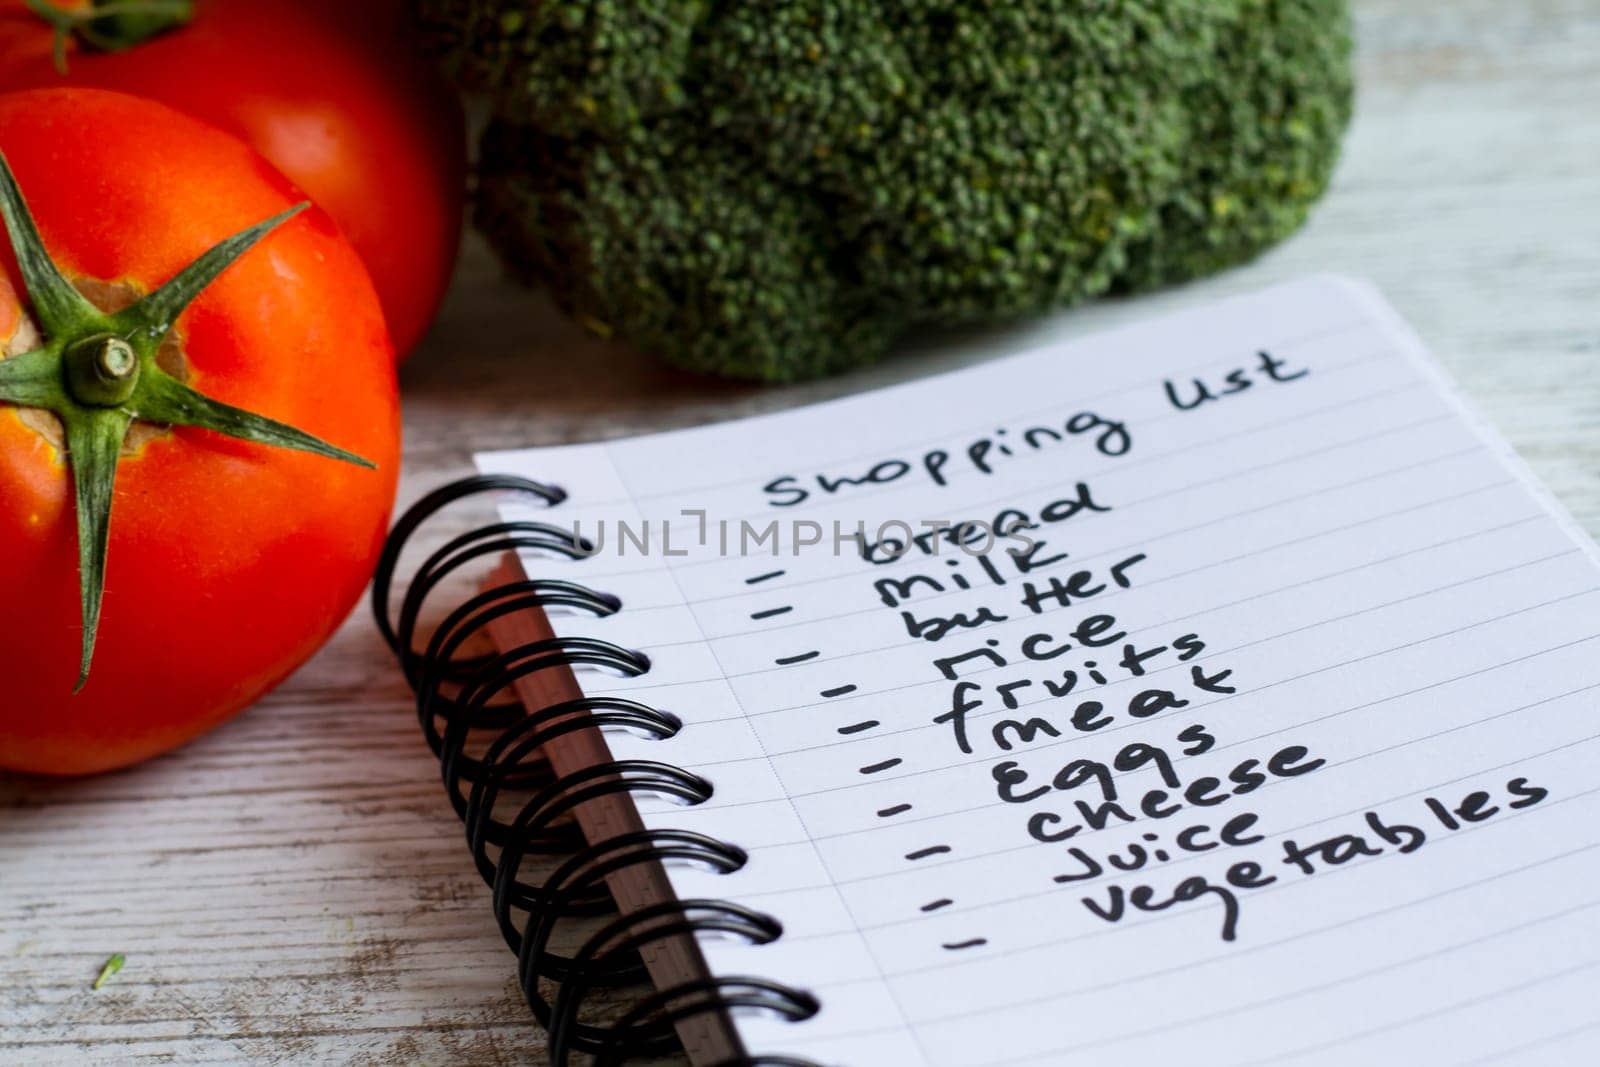 Shopping List
- bread
- milk
- butter
- rice
- fruits
- meat
- Eggs
- cheese
- Juice
- vegetables
UNLIMPHOTOS